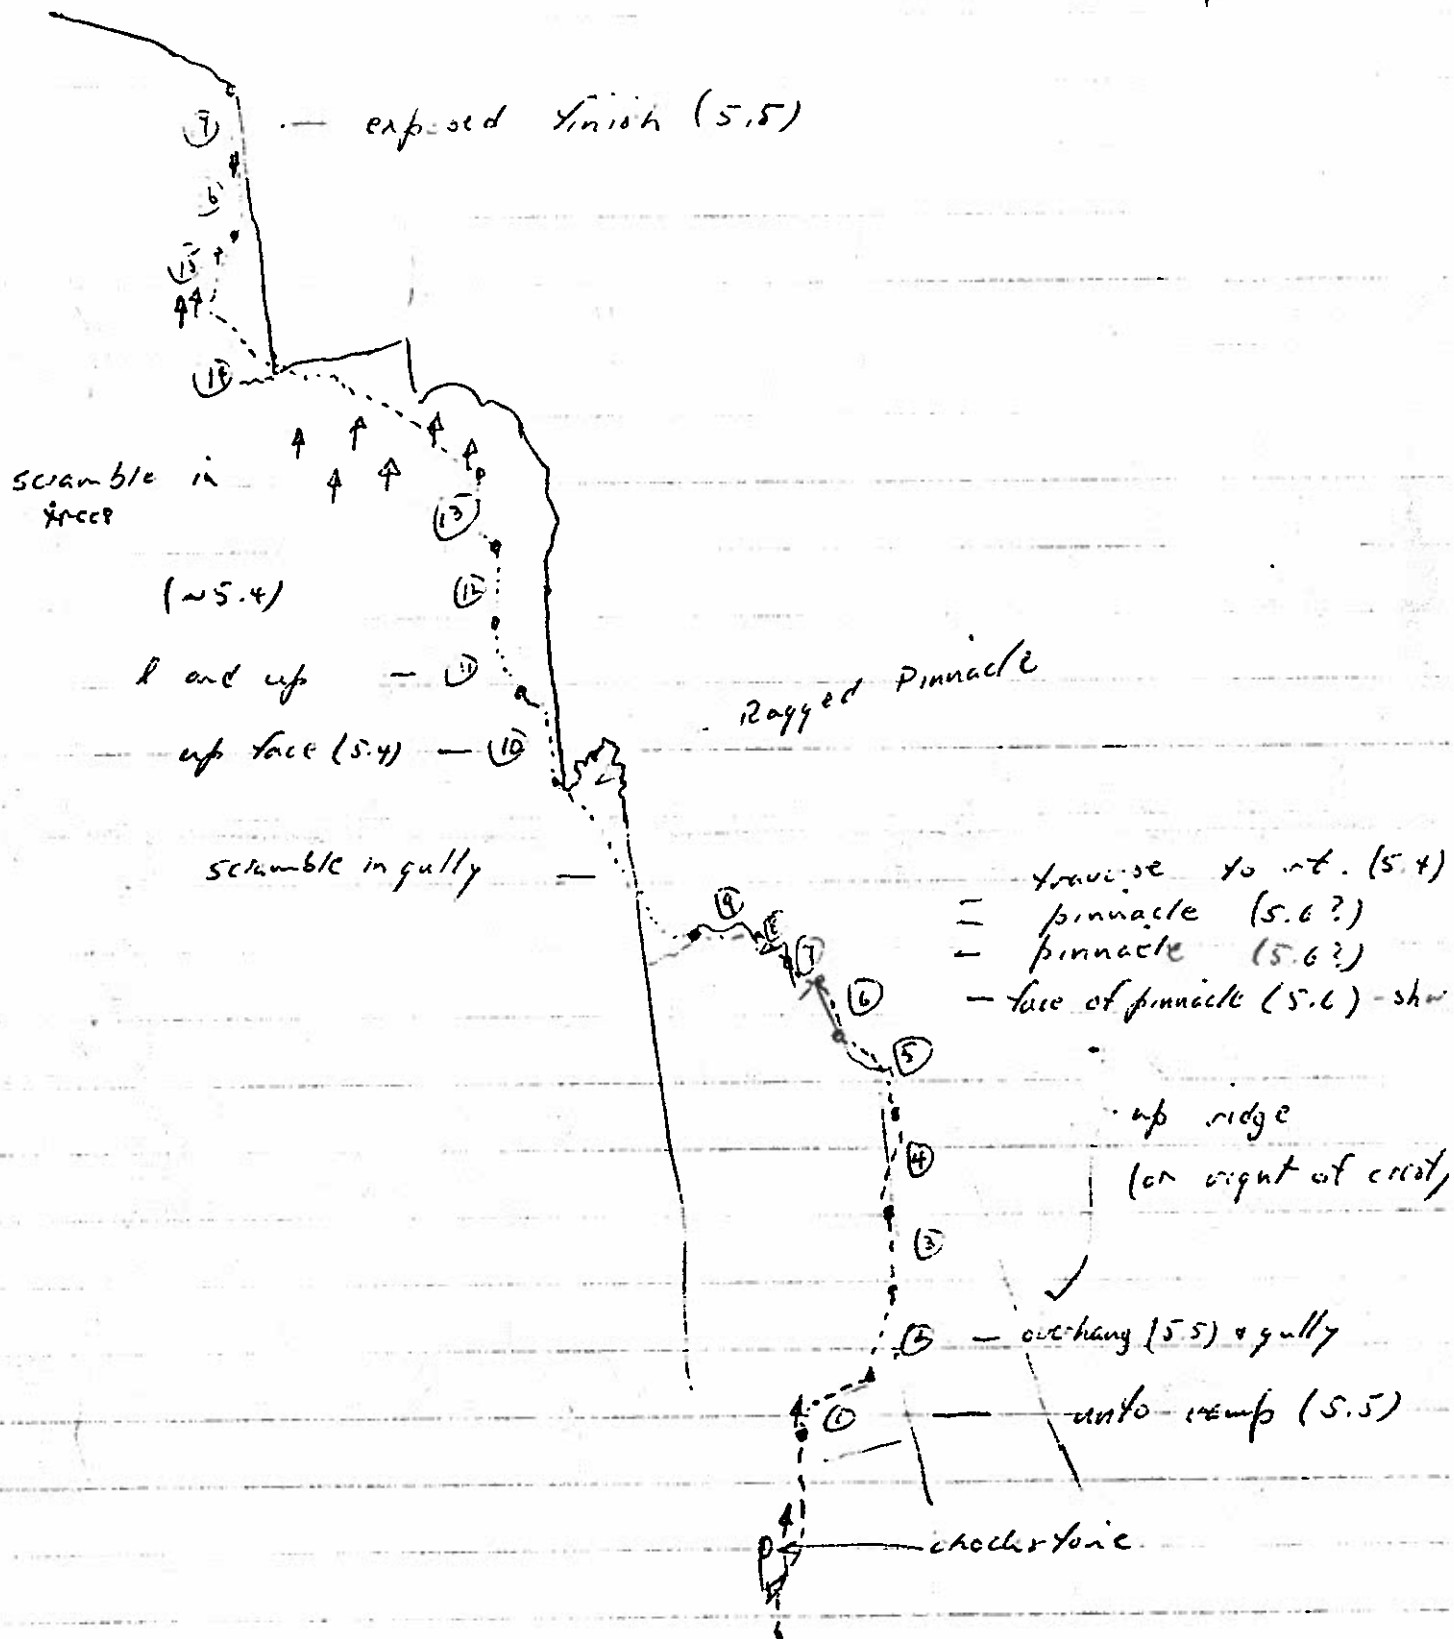 exposed finish (5.5)
7
6
15
14
scramble in
trees
13
(~5.4)
12
l and up — 11
up face (5.4) — 10
Ragged Pinnacle
scramble in gully —
9
8
7
6
traverse to rt. (5.4)
pinnacle (5.6?)
— pinnacle (5.6?)
— face of pinnacle (5.6) -
5
up ridge
(on right of crest)
4
3
2 — overhang (5.5) & gully
1 — unto ramp (5.5)
chockstone